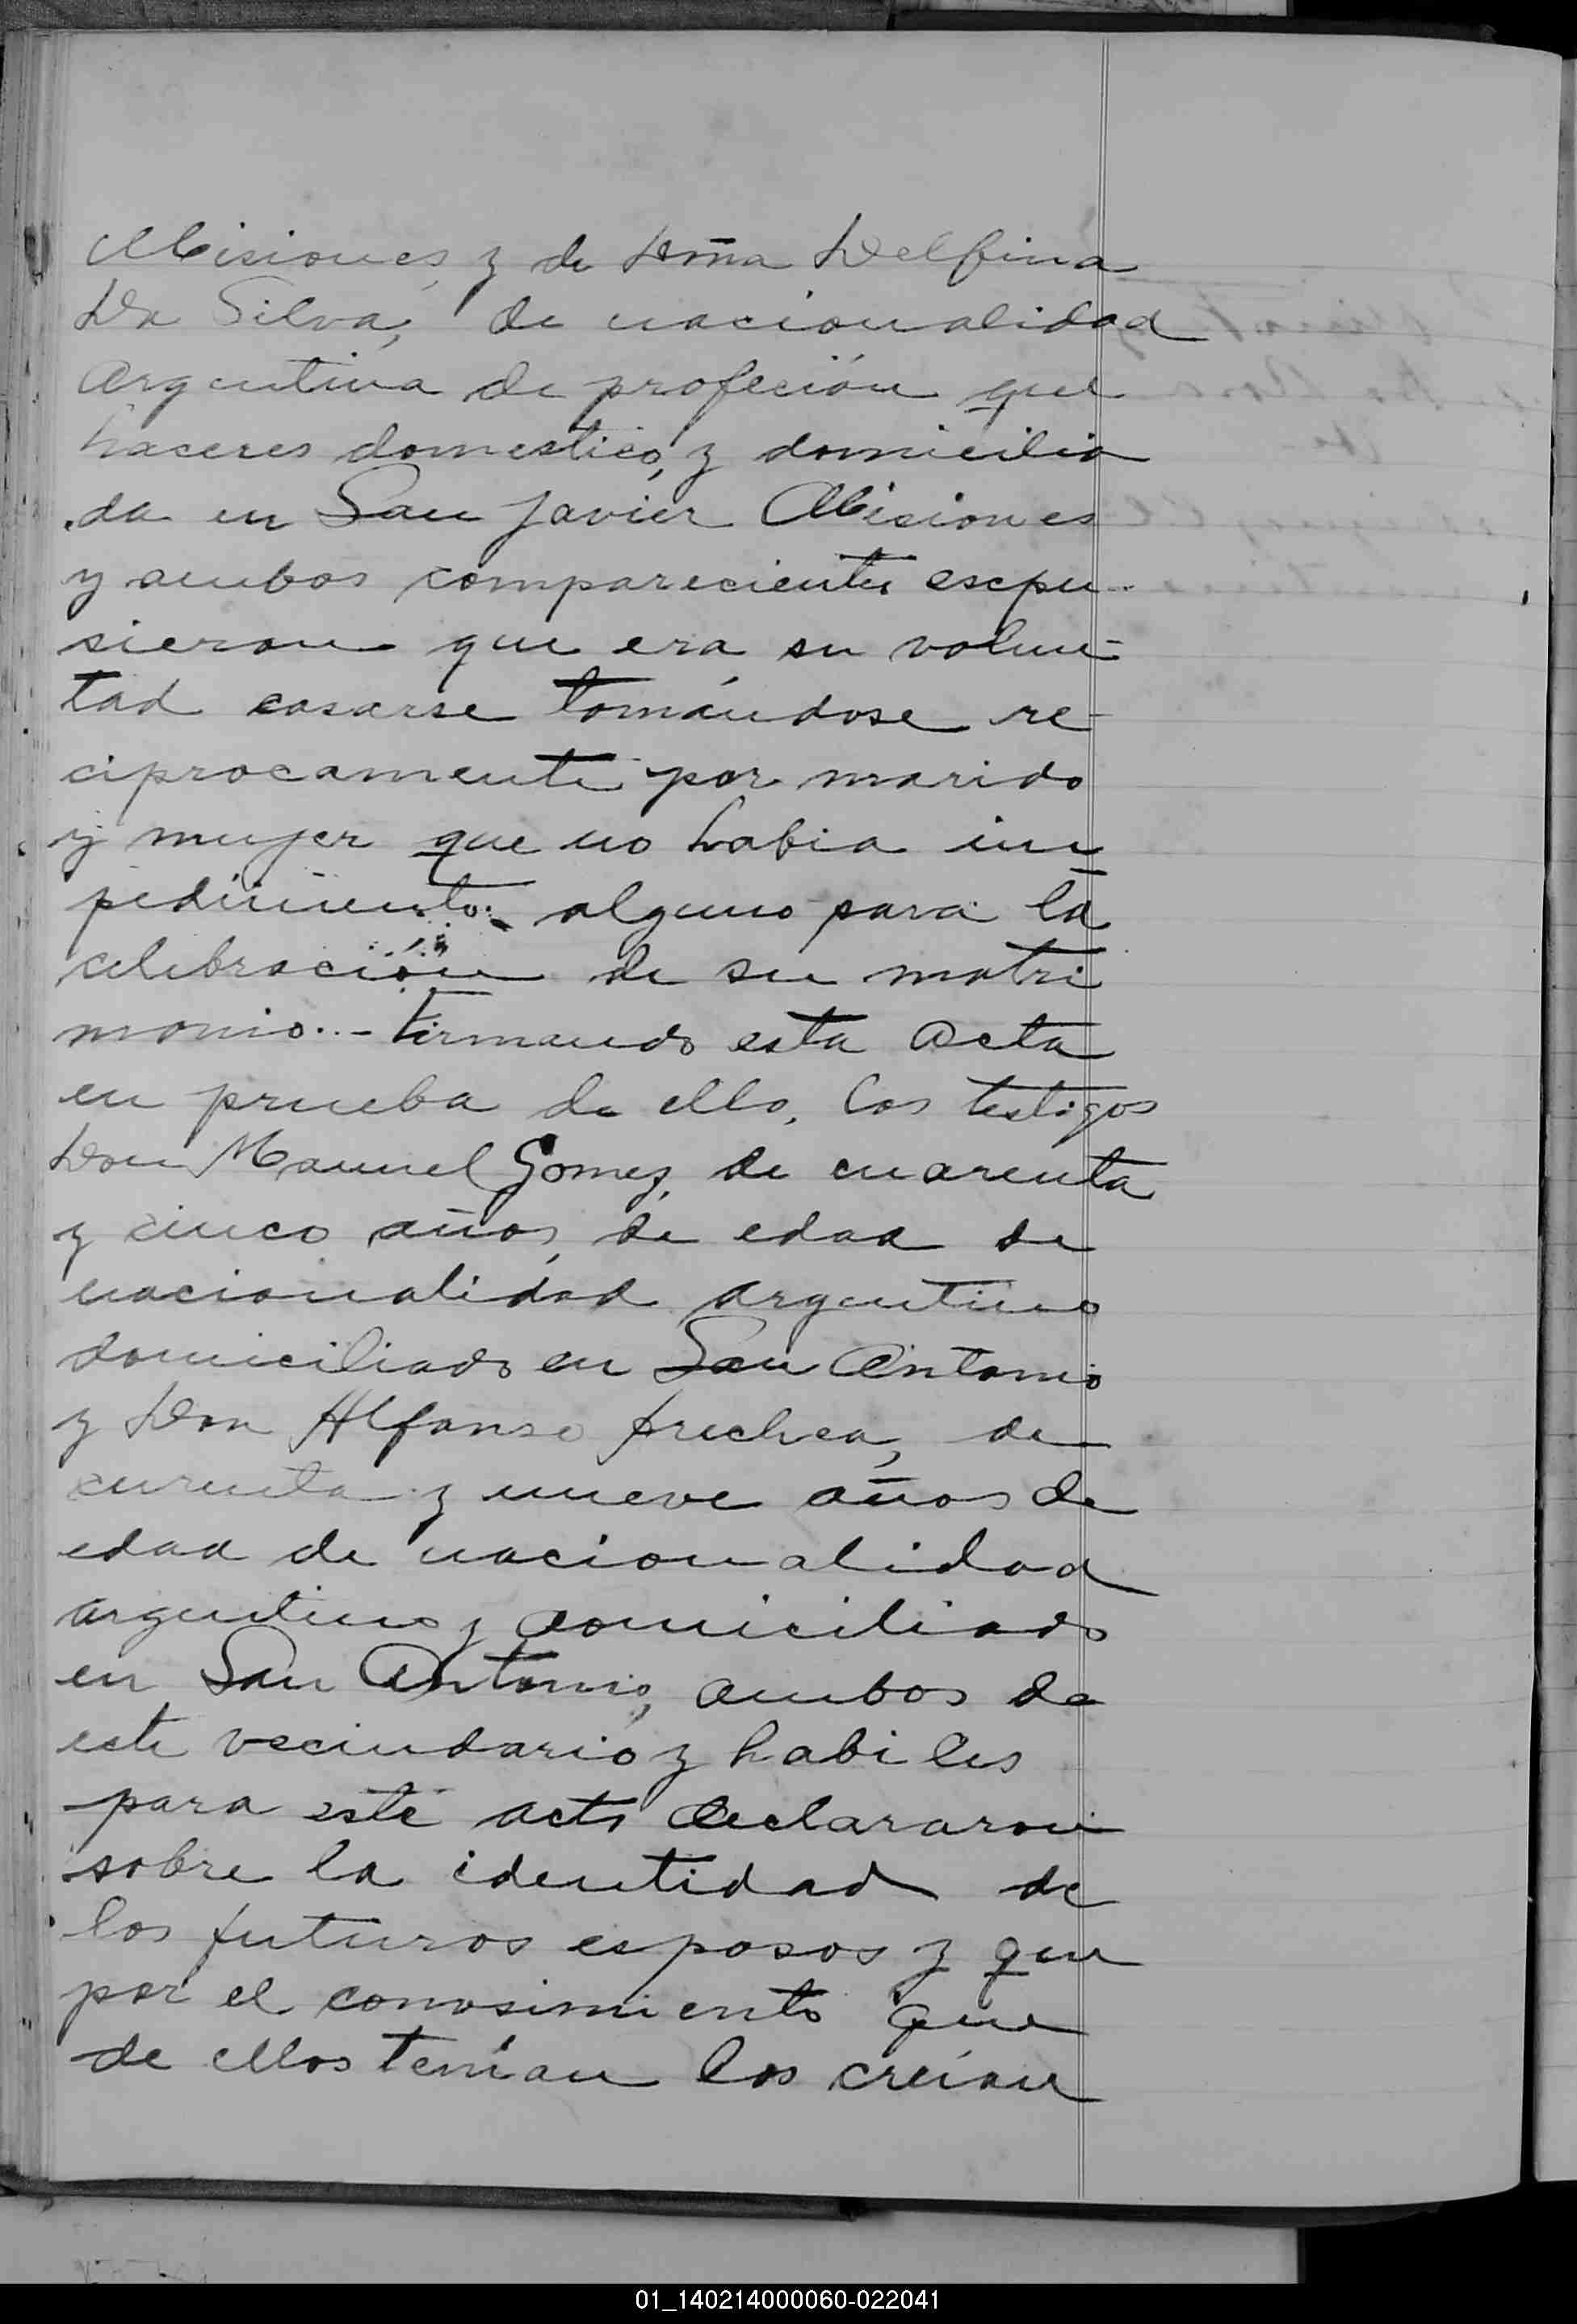 Misiones, y de Doña Delfina
Da Silva, de nacionalidad
Argentina de profeción que
haceres domestico, y domicilia
da en San Javier Misiones
y ambos comparecientes escpu-
sieron que era su volun-
tad casarse tomándose re-
ciprocamente por marido
y mujer que no habia im
pedimento alguno para la
celebración de su matri
monio.- Firmando esta acta
en prueba de ello, los testigos
Don Manuel Gomez, de cuarenta
y cinco años, de edad de
nacionalidad argentino
domiciliado en San Antonio
y Don Alfonso de
curenta y nueve años de
edad de nacionalidad
argentino y domiciliado
en San Antonio, ambos de
este vecindario y habiles
para este acto declararon
sobre la identidad de
los futuros esposos y que
por el conosimiento que
de ellos tenían los creían
01_140214000060-022041